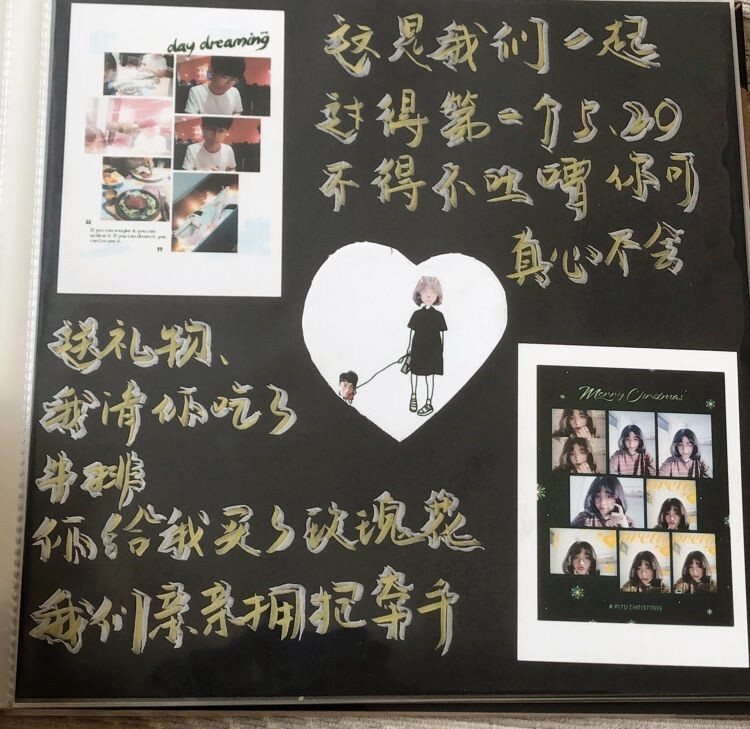 day dreaming
"
If you can imagine it, you can
achieve it. If you can dream it, you
can become it.
"
这是我们一起
过得第一个5.20
不得不吐嘈你可
真心不会
送礼物、
我请你吃了
牛排
你给我买了玫瑰花
我们亲亲拥抱牵手
Merry Christmas
# PITU CHRISTMAS